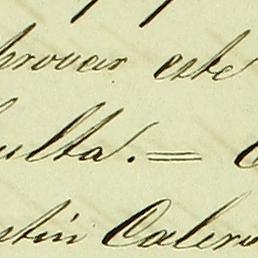 provar este
ulta. =
stin Calero